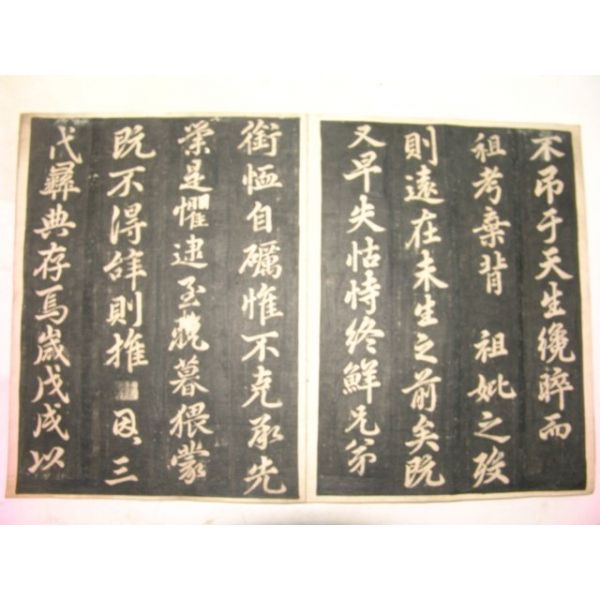 不弔于天生纔晬而
祖考棄背 祖妣之歿
則遠在未生之前矣既
又早失怙恃終鮮兄弟
銜恤自礪惟不克承先
業是懼逮至晩暮猥蒙
既不得辞則推 恩三
代彛典存焉歲戊戌以